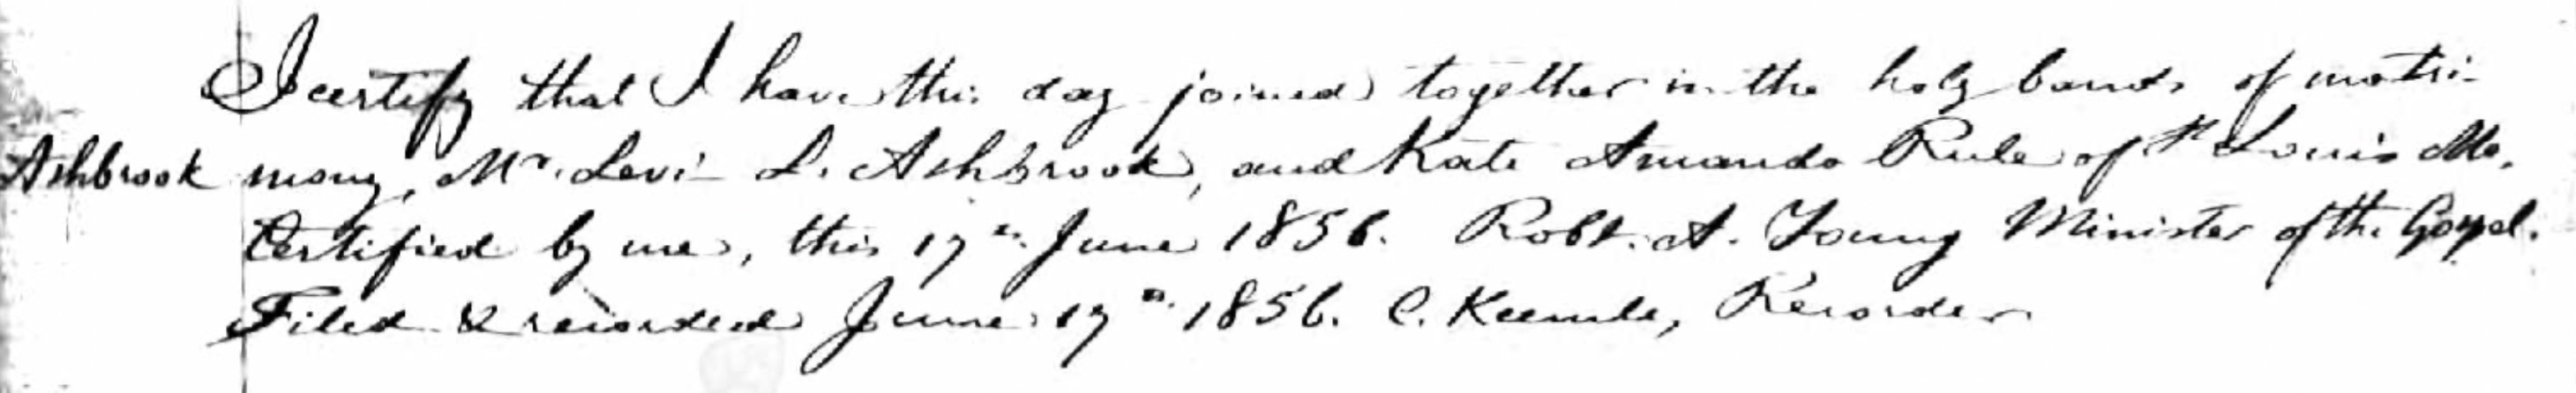 I certify that I have this day joined together in the holy bands of matri-
Ashbrook mony, Mr. Levi L. Ashbrook, and Kate Amanda Rule of St Louis Mo.
Certified by me, this 17th June 1856. Robt. A. Young Minister of the Gospel.
Filed & recorded June 17th 1856. C. Keemle, Recorder